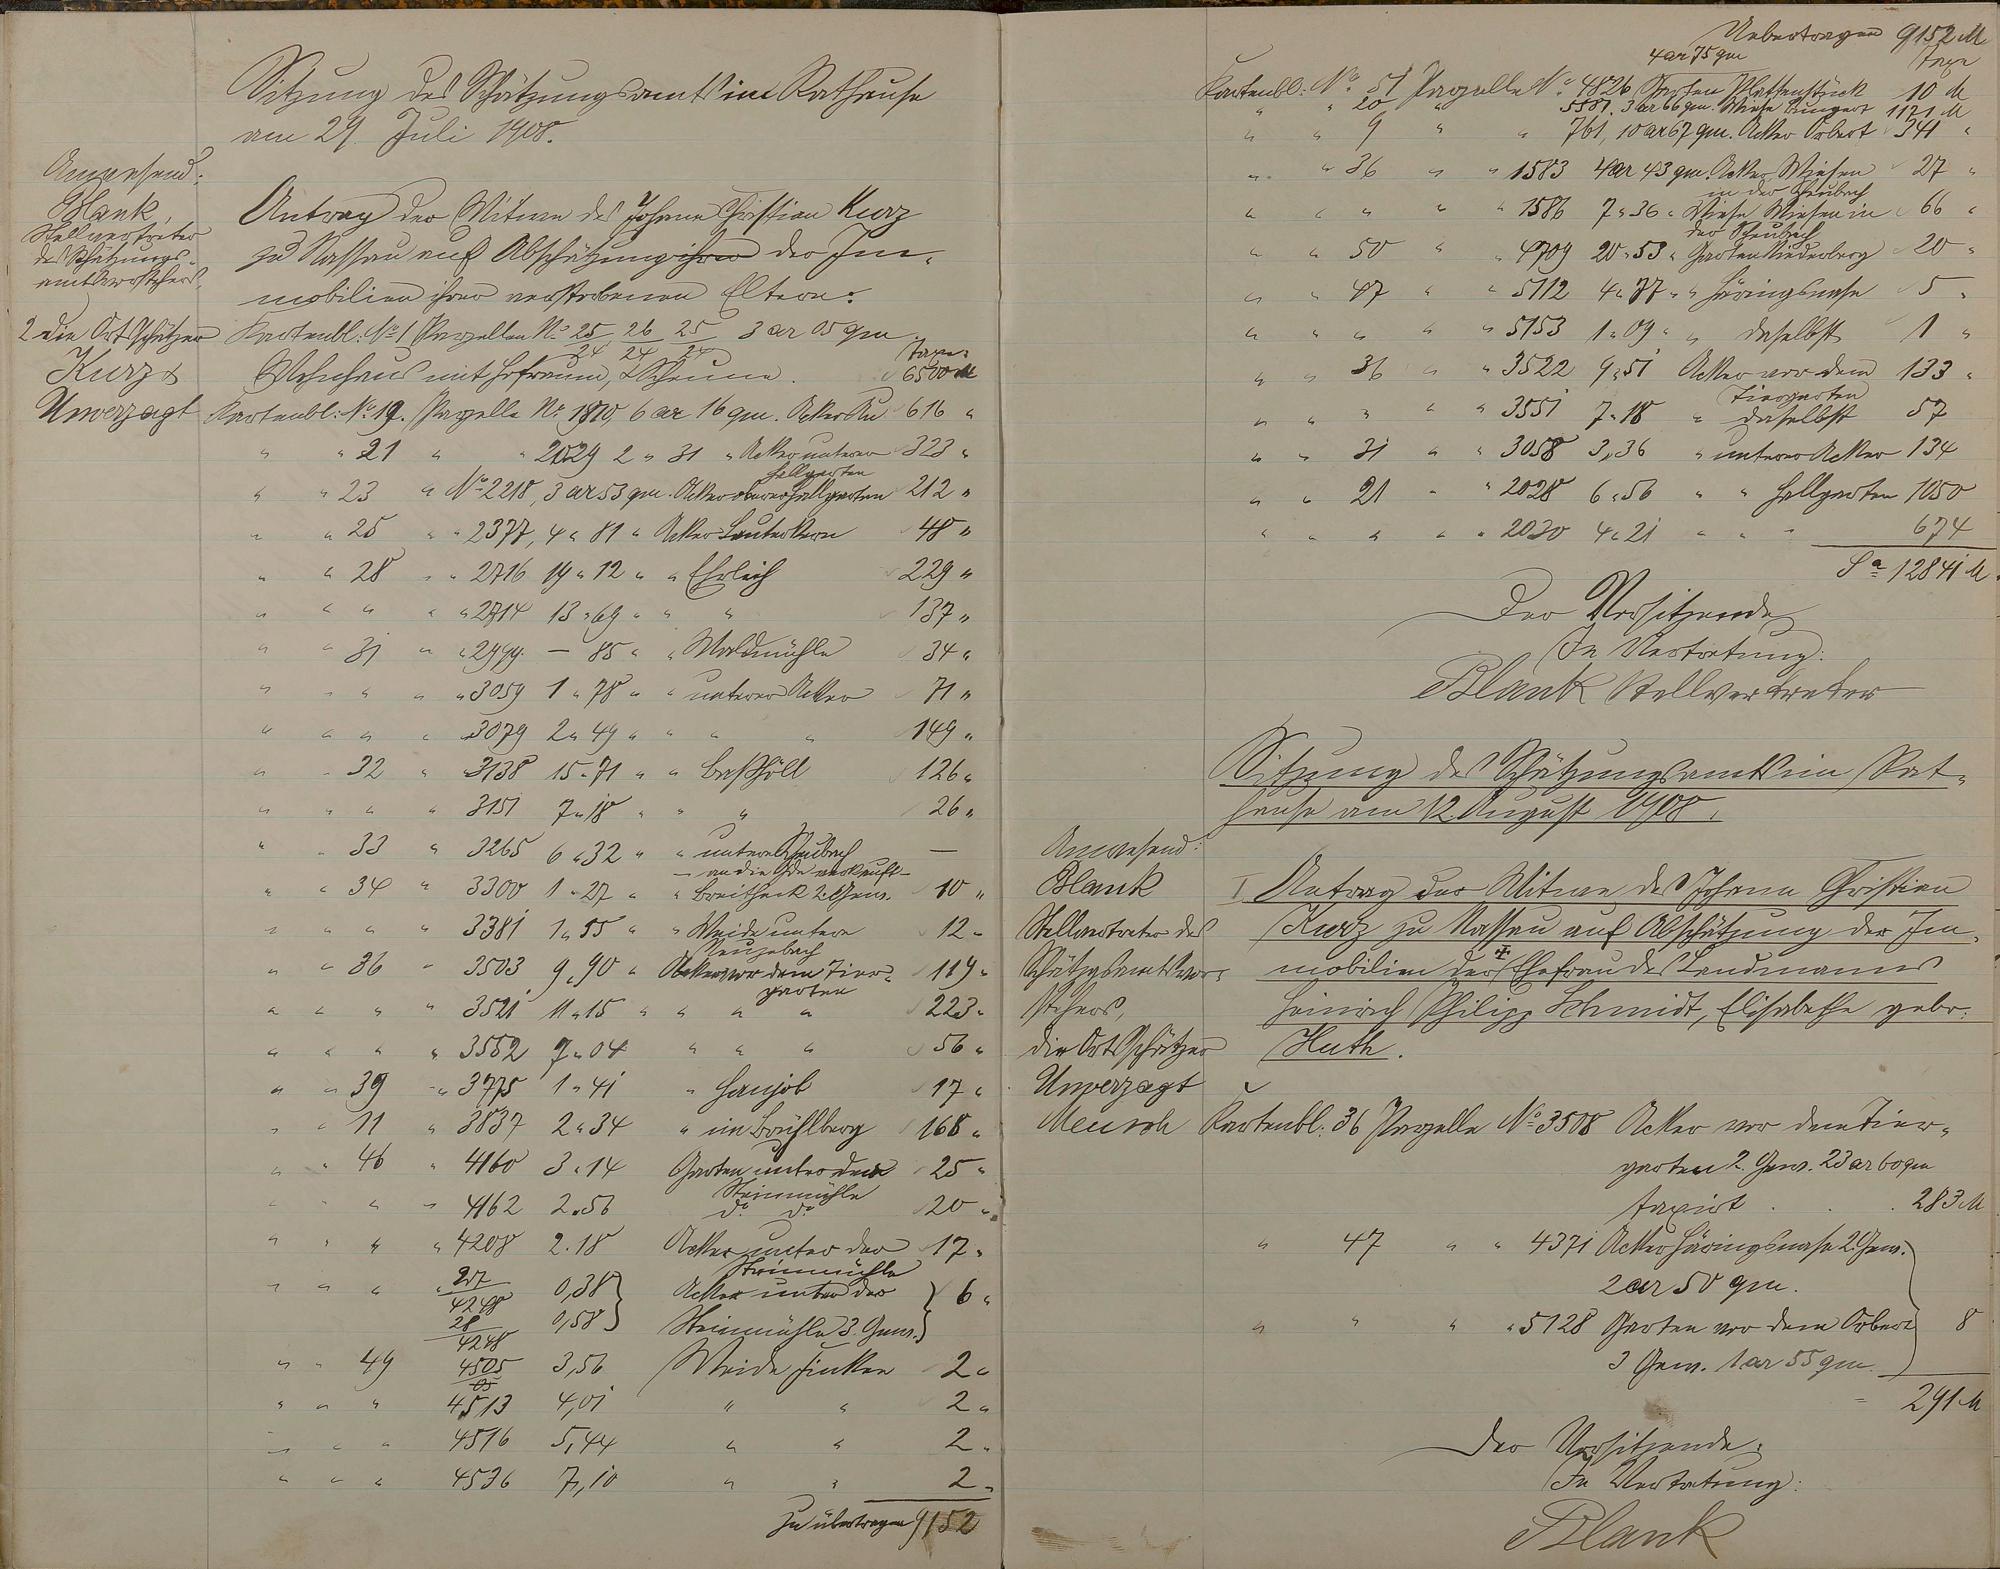 Sitzung des Schätzungsamts im Rathause
am 29. Juli 1908.
Anwesend:
Blank,
Stellvertreter
des Schätzungs-
amtsvorstehers,
2 die Ortsschätzer
Kurz &
Unverzagt
Antrag der Witwe des Johann Christian Kurz
zu Nassau auf Abschätzung ihrer der Im-
mobilien ihrer verstorbenen Eltern:
Kartenbl: No 1 Parzellen No 25/24 26/24 25/24 3 ar 05 qm
Taxe:
Wohnhaus mit Hofraum, & Scheune. 6500 M
Kartenbl: No 19. Parzelle No 1870, 6 ar 16 qm. Acker Au 616 "
" " 21 " " 2029 2 " 31 " Acker unterer 323 "
Hellgarten
" " 23 " No 2218, 3 ar 53 qm. Acker oberer Hellgarten 212 "
" " 25 " " 2377, 4 " 81 " Acker Lauterborn 48 "
" " 28 " " 2716 14 " 12 " " Ehrlich 229 "
" " " " " 2714 13 " 69 " " " 137 "
" " 31 " " 2999. — 85 " " Waldmühle 34 "
" " " " " 3059 1 " 78 " " unterer Acker 71 "
" " " " 3079 2 " 49 " " " " 149 "
" " 32 " 3138 15 " 71 " " Baßhöll 126 "
" " " " 3151 7 " 18 " " " 26 "
" " 33 " 3265 6 " 32 " " untere Scheubach —
— an die Gde verkauft —
" " 34 " 3300 1 " 27 " " Breitheck 2. Gew. 10 "
" " " " 3381 1 " 55 " " Weide untere 12 "
Neuzebach
" " 36 " 3503 9 " 90 " Acker vor dem Tier- 119 "
garten
" " " " 3521 11 " 15 " " " " 223 "
" " " " 3552 7 " 04 " " " 56 "
" " 39 " 3775 1 " 41 " Hanjob 17 "
" " 11 " 3837 2 " 34 " im Brühlberg 168 "
" " 46 " 4160 3 " 14 Garten unter dem 25 "
Steinmühle
" " " " 4162 2 " 56 do do 20 "
" " " " 4208 2 " 18 Acker unter der 17 "
Steinmühle
" " " 27/4248 0,38 Acker unter der } 6 "
28/4248 0,58 Steinmühle 3. Gew.
" " 49 4505 3,56 Weide Finken 2 "
" " " 4513 4,01 " " 2 "
" " " 4516 5,44 " " 2 "
" " " 4536 7,10 " " 2 "
zu übertragen 9152
Uebertragen 9152 M
4 ar 75 qm Taxe
Kartenbl: No 51 Parzelle No 4826 Garten Plattenstück 10 M
" " 20 " 5881. 3 ar 66 qm. Wiese Bungert 1171 M
" " 9 " " 761, 10 ar 67 qm. Acker Orbert 341 "
" " 36 " " 1583 4 ar 43 qm. Acker Wiesen 27 "
in der Scheubach
" " " " " 1586 7 " 36 " Wiese Wiesen in 66 "
der Scheubach
" " 50 " " 4709 20 " 53 " Garten Niederberg 20 "
" " 47 " " 5112 4 " 77 " " Häringsnase 5 "
" " " " " 5153 1 " 09 " " daselbst 1 "
" " 36 " " 3522 9 " 51 Acker vor dem 133 "
Tiergarten
" " " " " 3551 7 " 18 " daselbst 57
" " 31 " " 3058 3,36 " unterer Acker 134
" " 21 " " 2028 6 " 56 " " Hellgarten 1050
" " " " " 2030 4 " 21 " " " 674
Sa 12841 M.
Der Vorsitzende
In Vertretung:
Blank Stellvertreter
Sitzung des Schätzungsamts im Rat-
hause am 12. August 1908.
Anwesend:
Blank
Stellvertreter des
Schätzgsamtsvor-
stehers,
die Ortsschätzer
Unverzagt
Meusch
I Antrag der Witwe des Johann Christian
Kurz zu Nassau auf Abschätzung der Im-
mobilien der ‡ Ehefrau des Landmanns
Heinrich Philipp Schmidt, Elisabethe gebr.
Huth.
Kartenbl. 36 Parzelle No 3508 Acker vor dem Tier-
garten 2. Gew. 23 ar 60 qm
taxirt . . . 283 M
" 47 " " 4371 Acker Häringsnase 2. Gew.
2 ar 50 qm.
" " " " 5128 Garten vor dem Orbert 8
3 Gew. 1 ar 55 qm.
= 291 M
Der Vorsitzende:
In Vertretung:
Blank